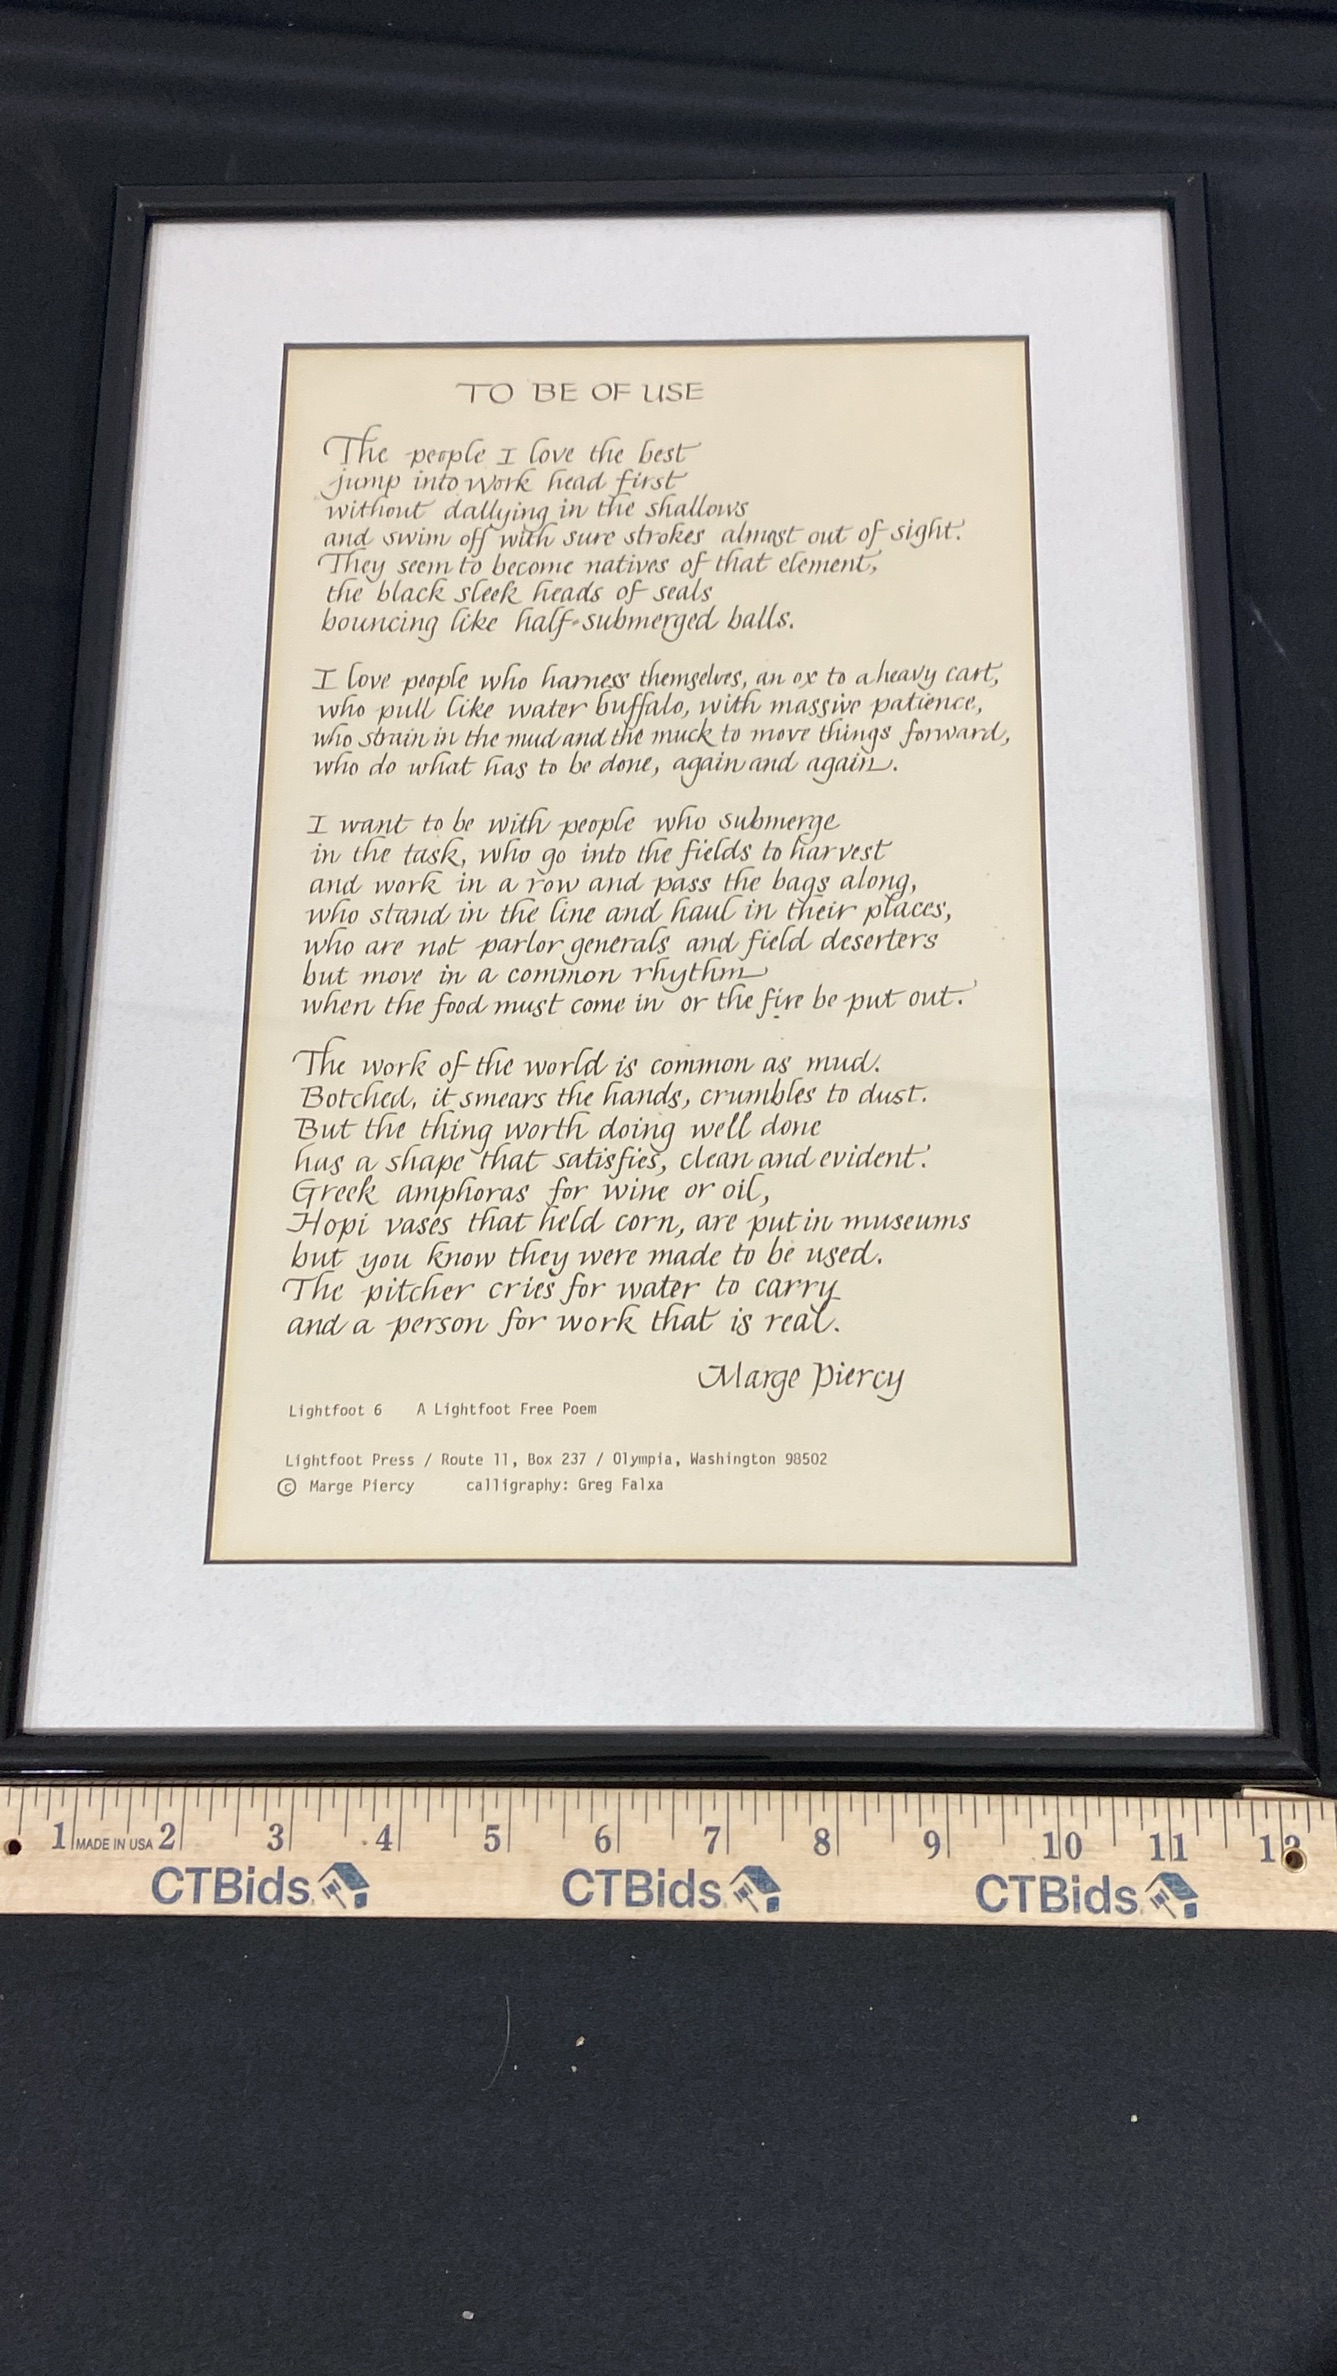 TO BE OF USE
The people I love the best
jump into work head first
without dallying in the shallows
and swim off with sure strokes almost out of sight.
They seem to become natives of that element,
the black sleek heads of seals
bouncing like half-submerged balls.
I love people who harness themselves, an ox to a heavy cart,
who pull like water buffalo, with massive patience,
who strain in the mud and the muck to move things forward,
who do what has to be done, again and again.
I want to be with people who submerge
in the task, who go into the fields to harvest
and work in a row and pass the bags along,
who stand in the line and haul in their places,
who are not parlor generals and field deserters
but move in a common rhythm
when the food must come in or the fire be put out.
The work of the world is common as mud.
Botched, it smears the hands, crumbles to dust.
But the thing worth doing well done
has a shape that satisfies, clean and evident.
Greek amphoras for wine or oil,
Hopi vases that held corn, are put in museums
but you know they were made to be used.
The pitcher cries for water to carry
and a person for work that is real.
Marge Piercy
Lightfoot 6 A Lightfoot Free Poem
Lightfoot Press / Route 11, Box 237 / Olympia, Washington 98502
© Marge Piercy calligraphy: Greg Falxa
1 MADE IN USA 2 3 4 5 6 7 8 9 10 11 12
CTBids CTBids CTBids